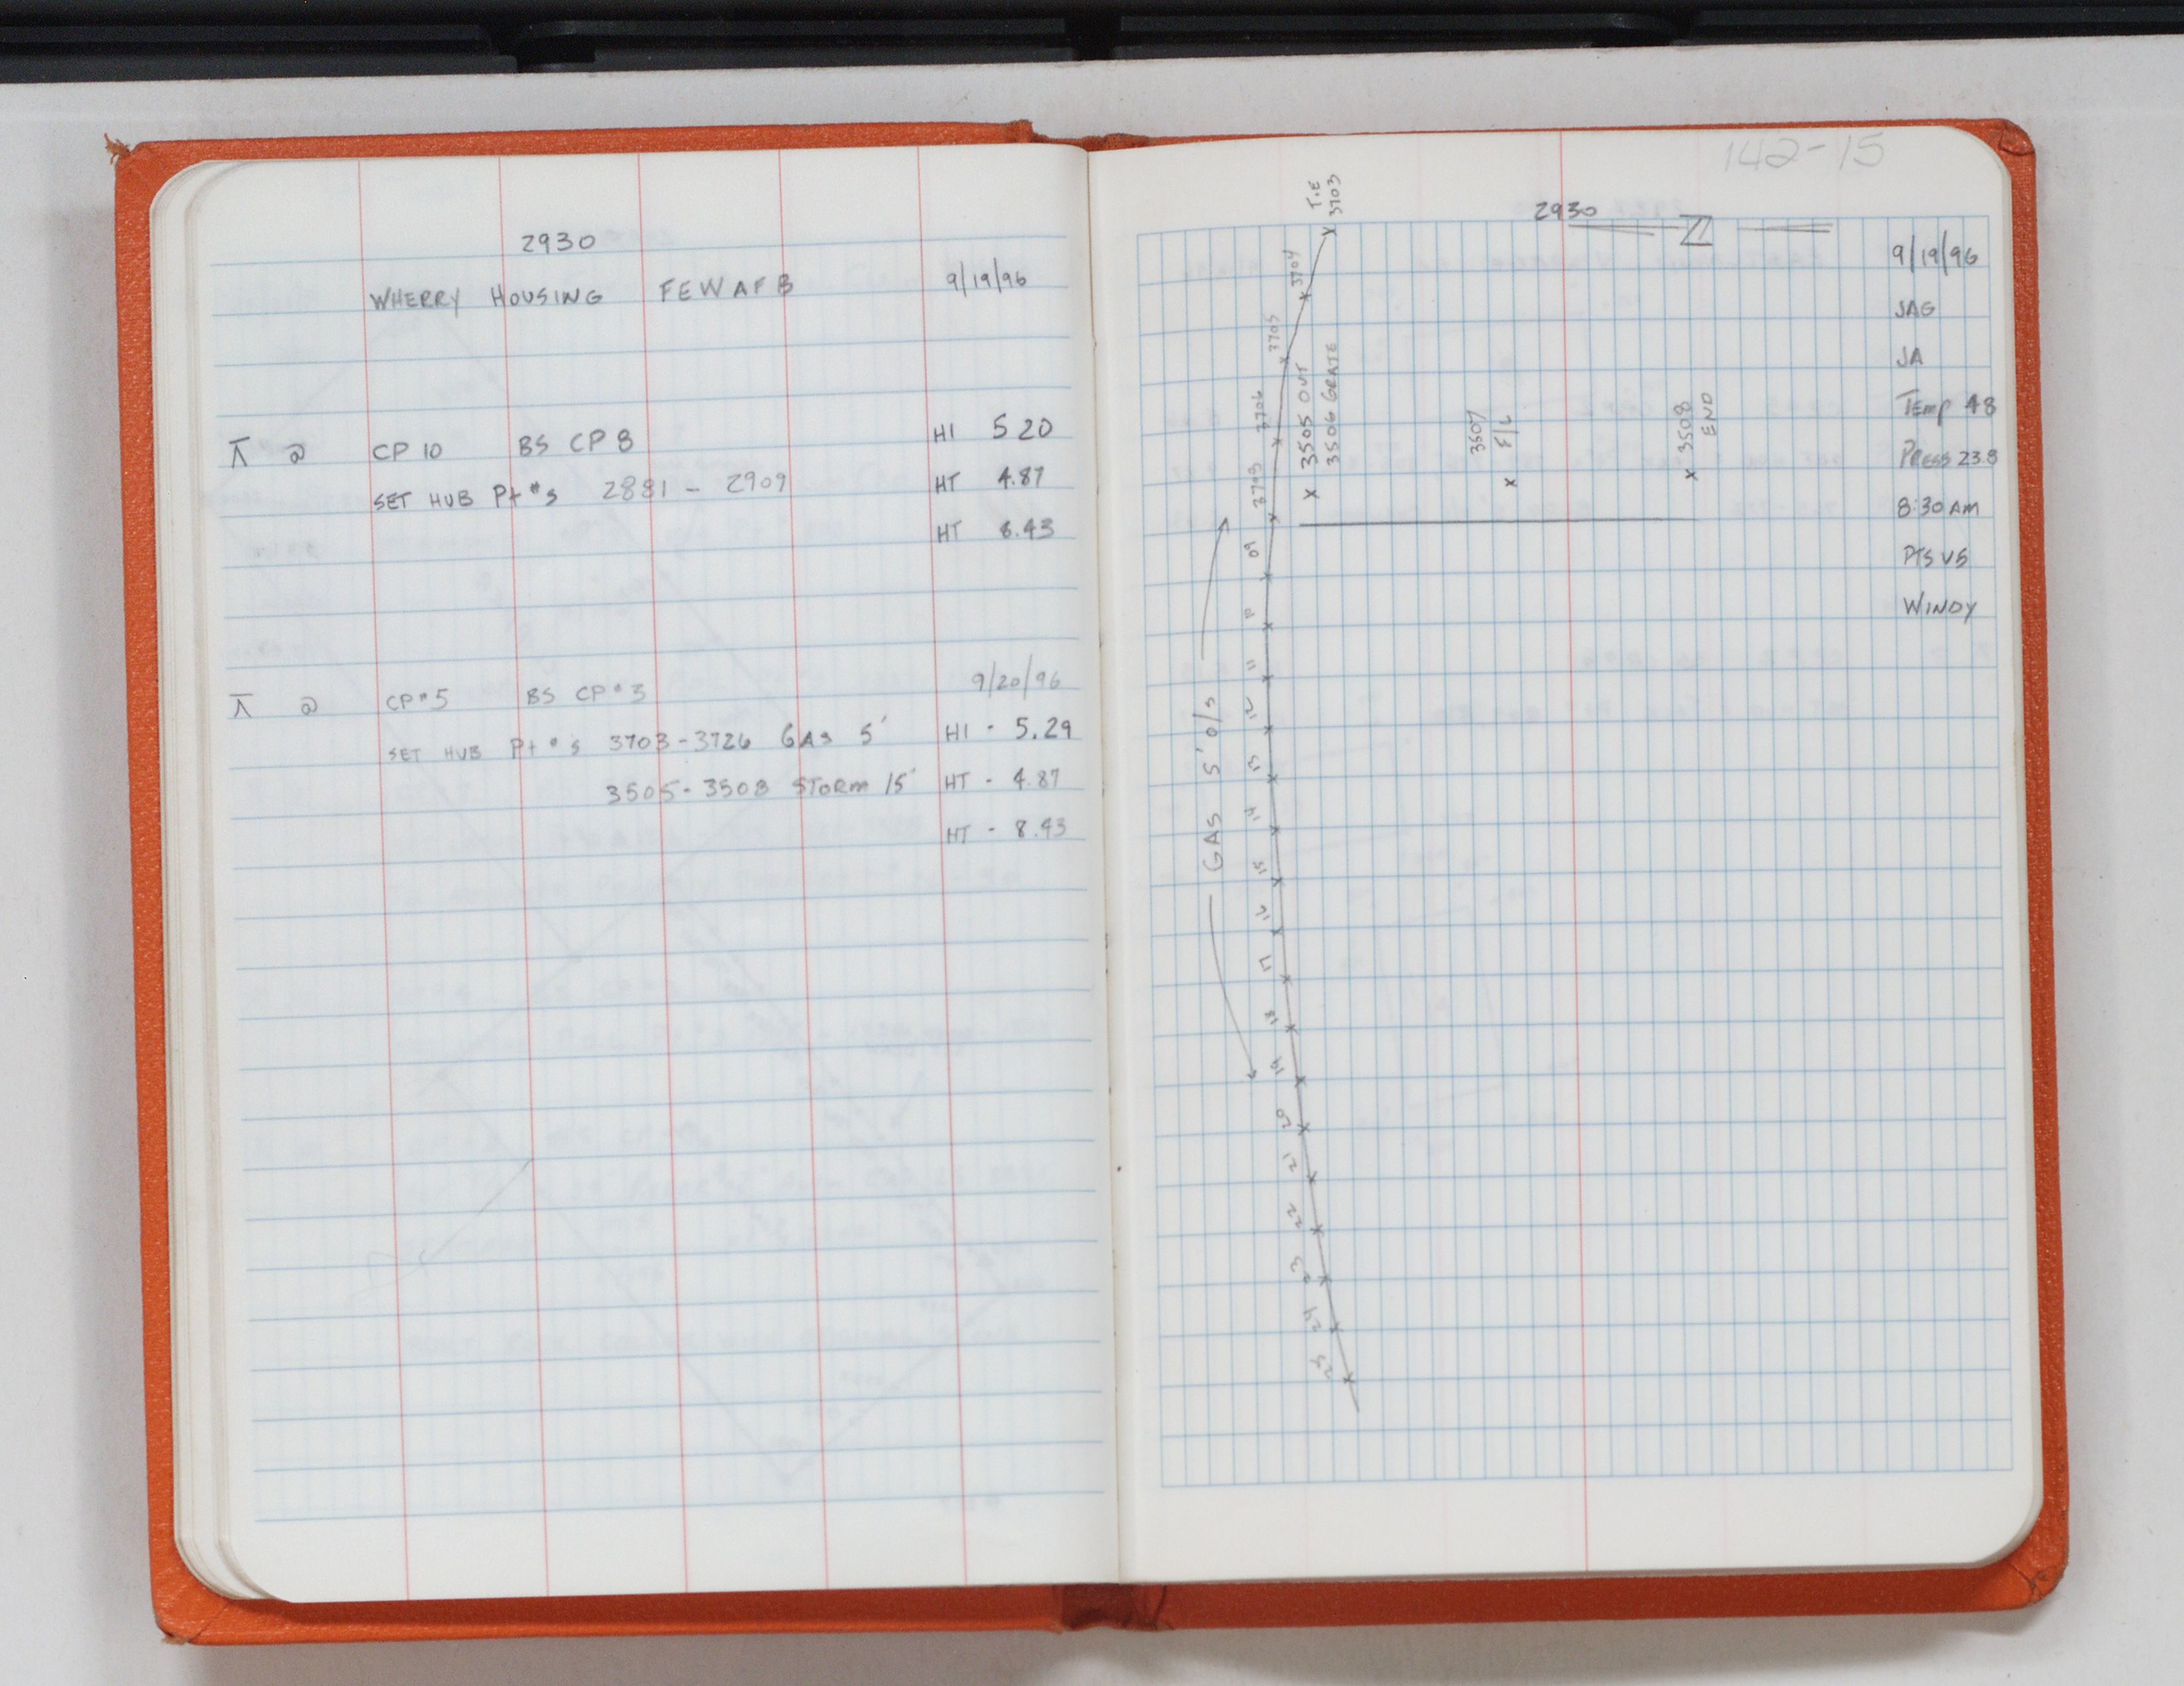 2930
WHERRY HOUSING FEWAFB 9/19/96
⊼ @ CP 10 BS CP 8 HI 5.20
SET HUB Pt #s 2881 - 2909 HT 4.87
HT 8.43
⊼ @ CP#5 BS CP#3 9/20/96
SET HUB Pt #s 3703-3726 GAS 5' HI - 5.29
3505-3508 STORM 15' HT - 4.87
HT - 8.43
142-15
2930
9/19/96
JAG
JA
TEMP 48
PRESS 23.8
8:30 AM
PTS V5
WINDY
TIE
3703
3704
3705
3706
09
10
11
12
13
14
15
16
17
18
19
20
21
22
23
24
25
GAS 5' O/S
3505 OUT
3506 GRATE
3507
F/L
3508
END